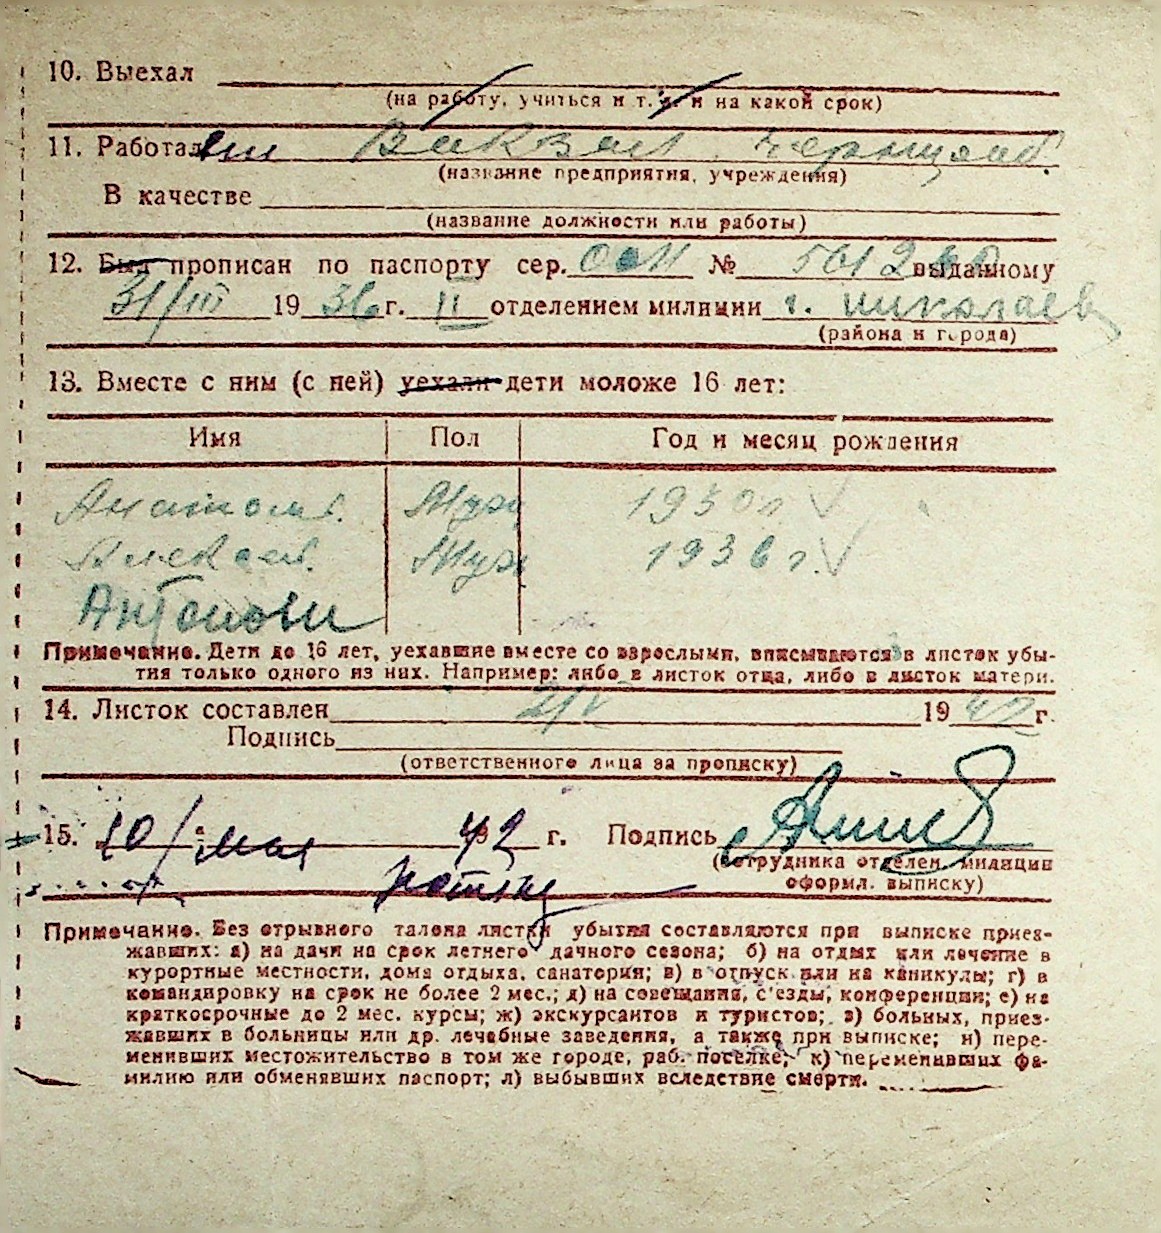 10. Выехал
(на работу, учиться и т. д. и на какой срок)
11. Работал Вокзал
(название предприятия, учреждения)
В качестве
(название должности или работы)
12. Был прописан по паспорту сер. № выданному
31/III 1936 г. II отделением милиции г. Николаев
(района и города)
13. Вместе с ним (с ней) уехали дети моложе 16 лет:
Имя Пол Год и месяц рождения
Анатол. Муж 1930 г
Алексей. Муж 1936 г.
Примечание. Дети до 16 лет, уехавшие вместе со взрослыми, вписываются в листок убы-
тия только одного из них. Например: либо в листок отца, либо в листок матери.
14. Листок составлен 2/V 1942 г.
Подпись
(ответственного лица за прописку)
15. 10/мая 42 г. Подпись
(сотрудника отделен. милиции
оформл. выписку)
Примечание. Без отрывного талона листки убытия составляются при выписке приез-
жавших: а) на дачи на срок летнего дачного сезона; б) на отдых или лечение в
курортные местности, дома отдыха, санатория; в) в отпуск или на каникулы; г) в
командировку на срок не более 2 мес.; д) на совещания, с'езды, конференции; е) на
краткосрочные до 2 мес. курсы; ж) экскурсантов и туристов; з) больных, приез-
жавших в больницы или др. лечебные заведения, а также при выписке; и) пере-
менивших местожительство в том же городе, раб. поселке; к) переменивших фа-
милию или обменявших паспорт; л) выбывших вследствие смерти.